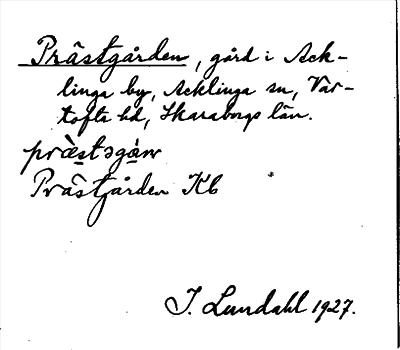 Prästgården, gård i Ack-
linga by, Acklinga sn, Var-
tofta hd, Skaraborgs län.
præ̀stəgàɳ
Prästgården Kb
I. Lundahl 1927.